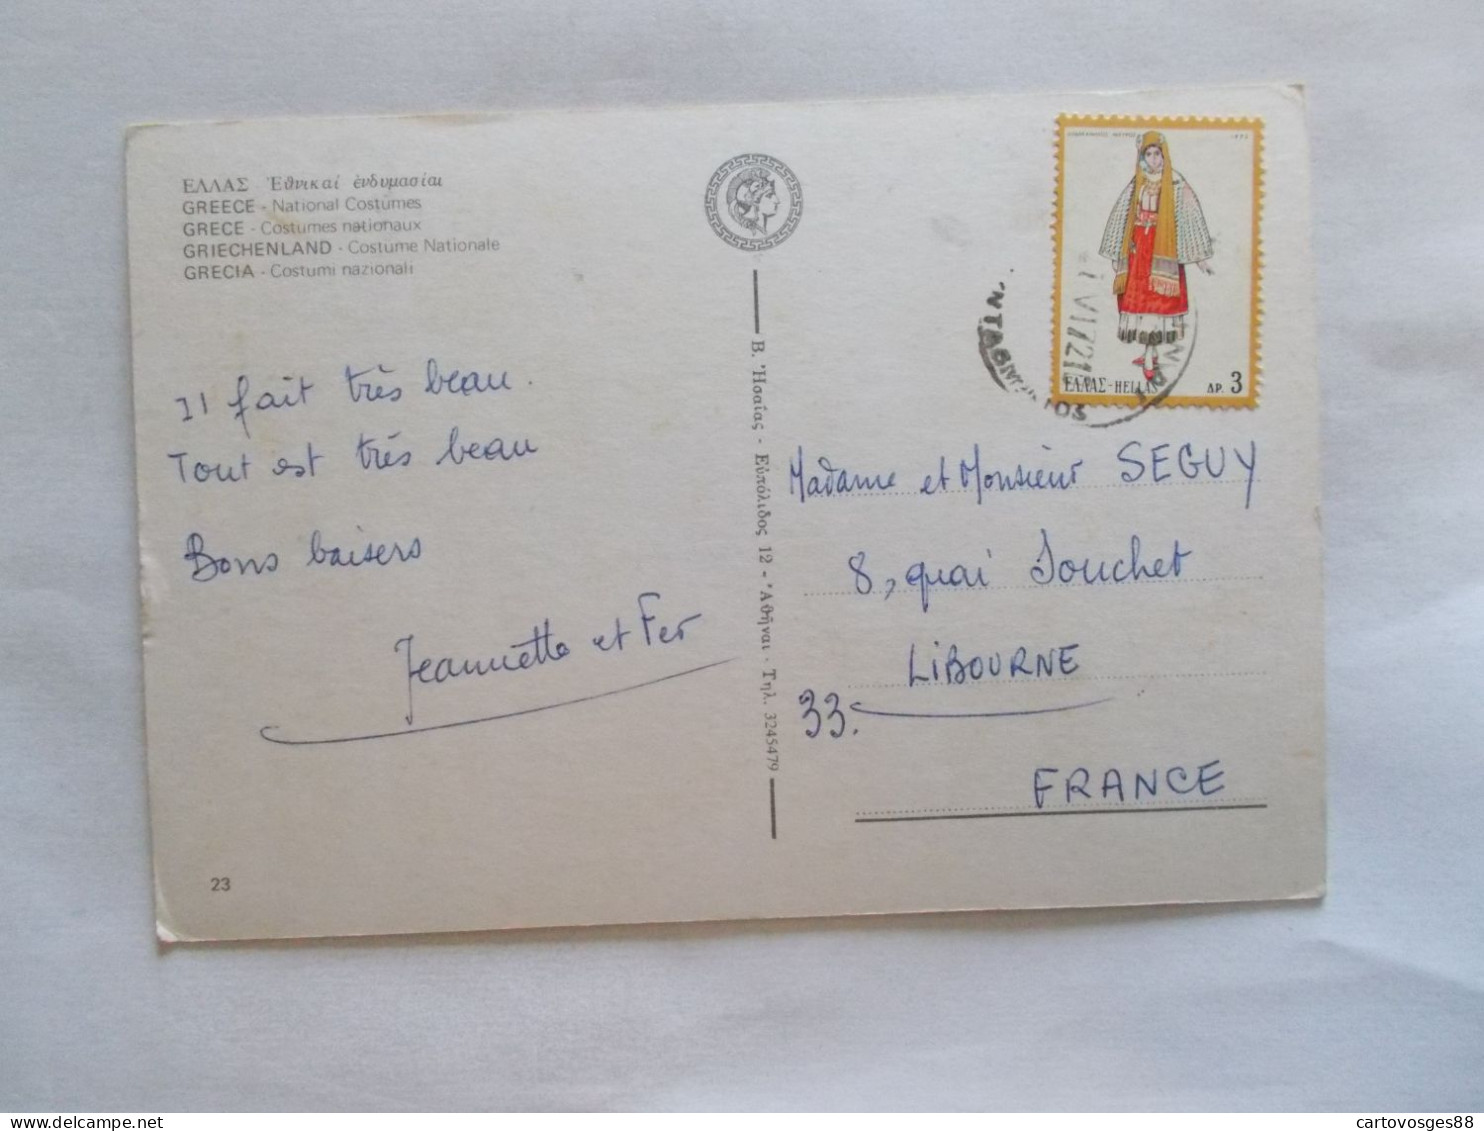 ΕΛΛΑΣ Ἐθνικαί ἐνδυμασίαι
GREECE - National Costumes
GRECE - Costumes nationaux
GRIECHENLAND - Costume Nationale
GRECIA - Costumi nazionali
Il fait très beau.
Tout est très beau
Bons baisers
Jeannette et Fer
23
Β. Ἡσαΐας - Εὐπόλιδος 12 - Ἀθῆναι - Τηλ. 3245479
1972
ΕΛΛΑΣ-HELLAS ΔΡ. 3
VI 72
Madame et Monsieur SEGUY
8, quai Souchet
LIBOURNE
33.
FRANCE
cartovosges88